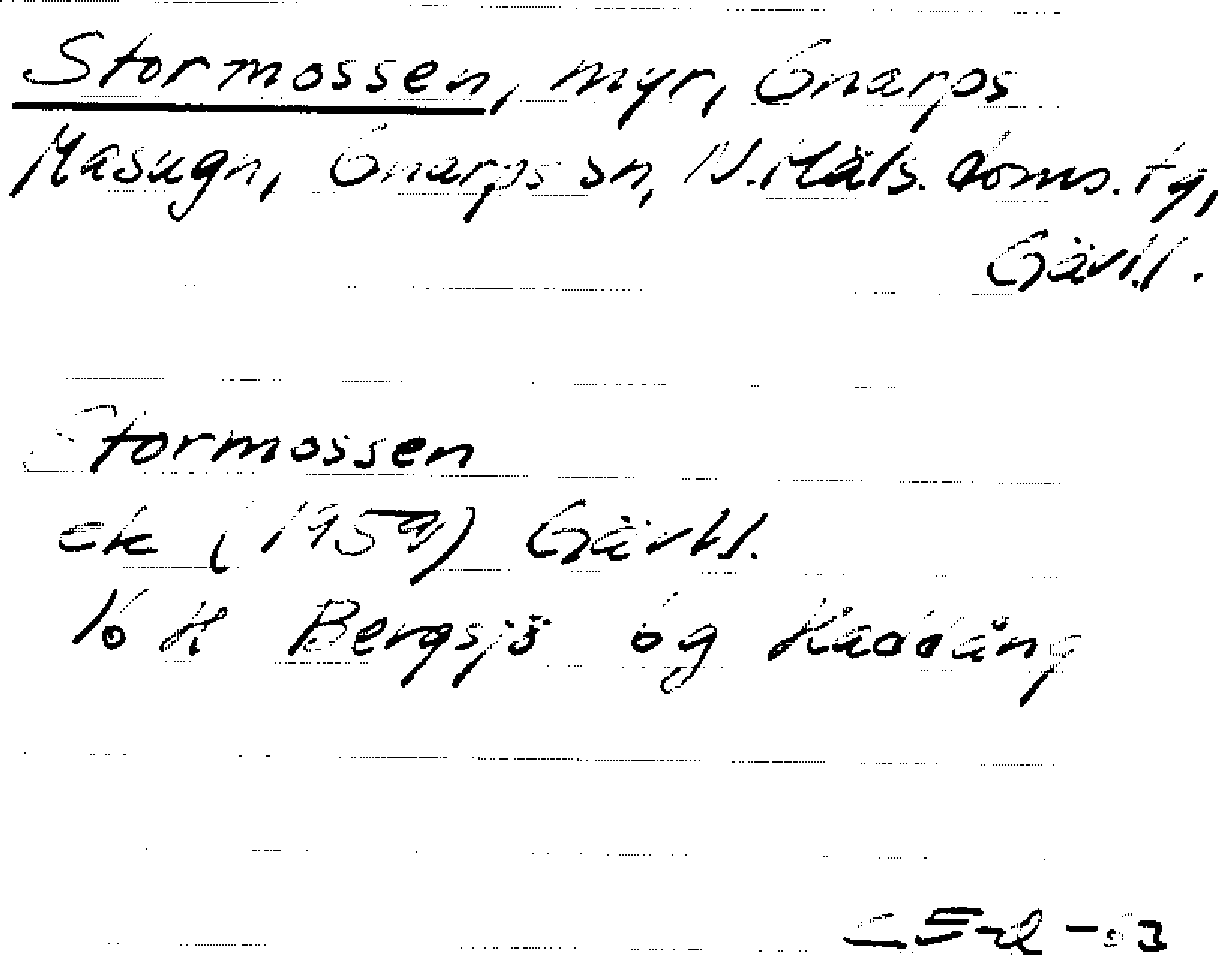 Stormossen, myr, Gnarps
Masugn, Gnarps sn, N. Häls. doms. tg,
Gävl.l.
Stormossen
ek (1959) Gävl.l.
Bergsjö og Haddäng